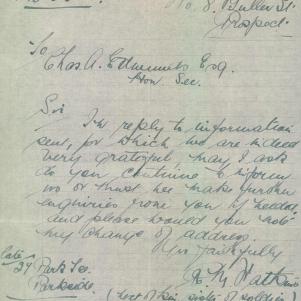 No. 8. Fuller St.
Prospect
To
Chas. A. Edmunds Esq.
Hon Sec.
Sir
In reply to information
sent, for which we are indeed
very grateful, may I ask
do you continue to inform
us or must we make further
enquiries from you if needed
and please would you note
my change of address.
Yrs faithfully
Late
24 Park Tce.
Parkside
(next of kin sister of soldier)